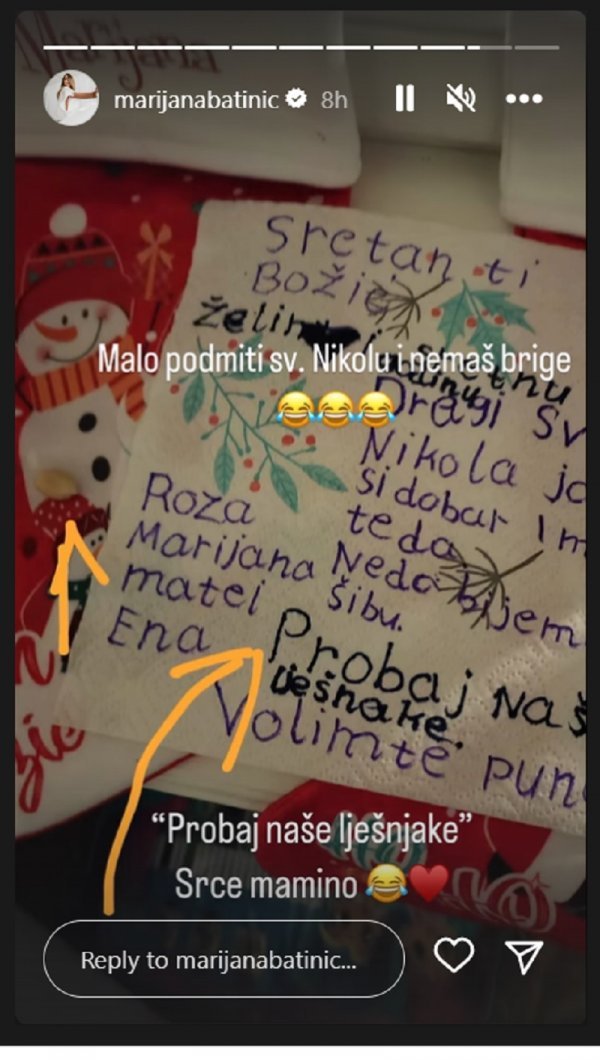 Marijana
marijanabatinic 8h
Sretan ti
Božić
Malo podmiti sv. Nikolu i nemaš brige
😂😂😂
Dragi Sv
Nikola
si dobar
Roza
Marijana
matei
Ena
Neda
šibu.
Probaj Naš
lješnake.
Volimte pun
“Probaj naše lješnjake”
Srce mamino 😂♥️
Reply to marijanabatinic...